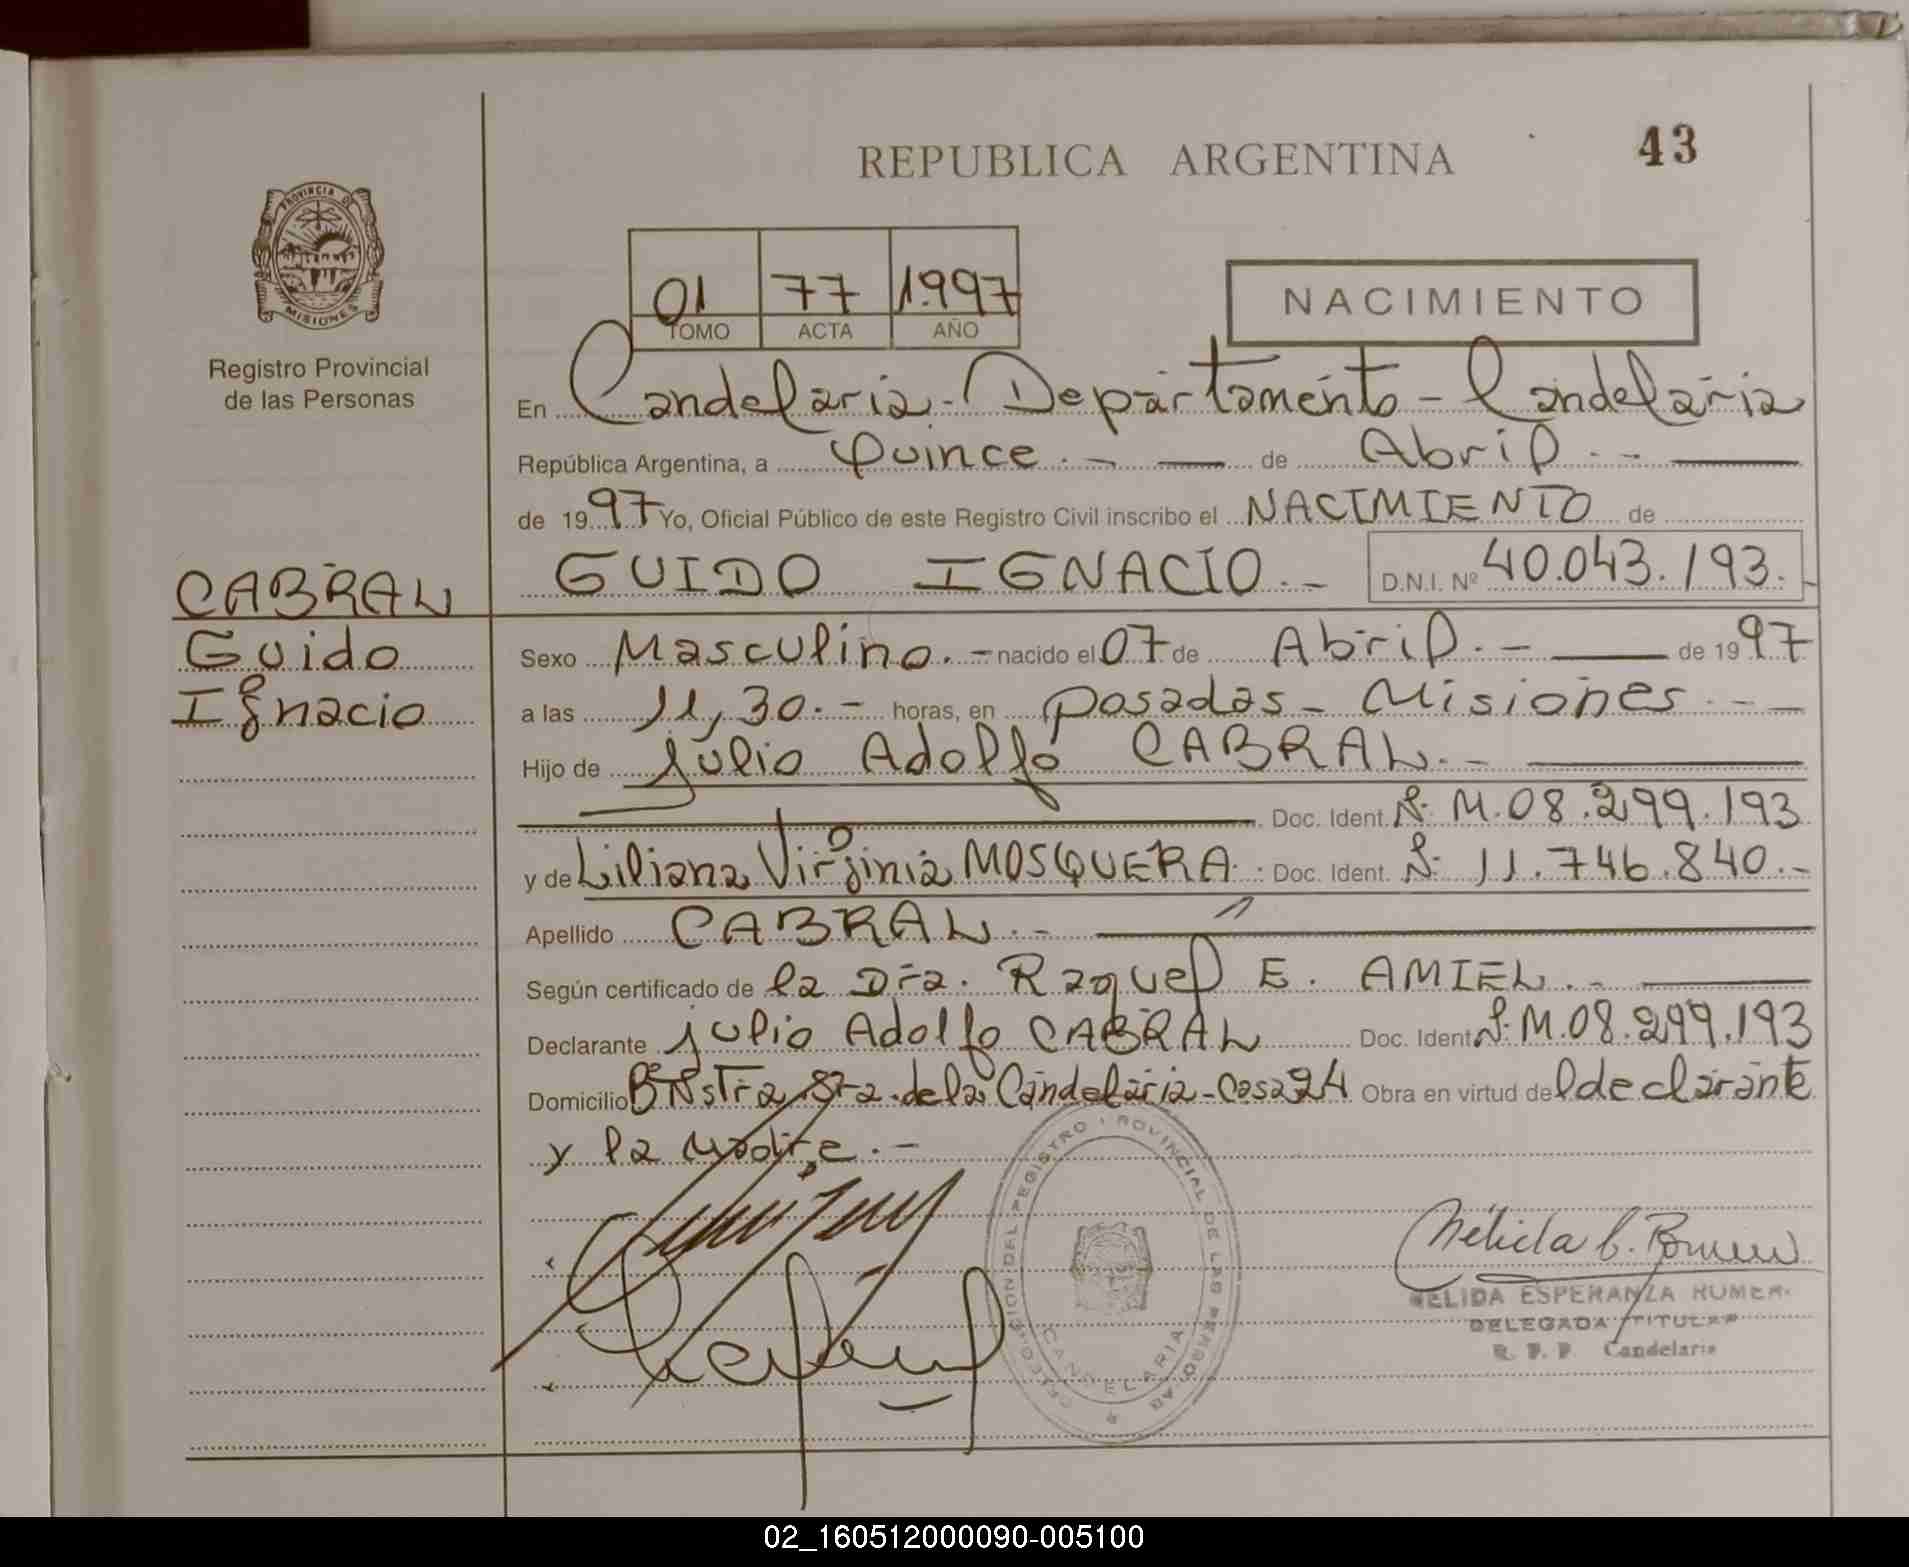 REPUBLICA ARGENTINA
43
PROVINCIA DE
MISIONES
Registro Provincial
de las Personas
01 77 1.997
TOMO ACTA AÑO
NACIMIENTO
En Candelaria - Departamento - Candelaria
República Argentina, a Quince.- — de Abril.- —
de 1997 Yo, Oficial Público de este Registro Civil inscribo el NACIMIENTO de
GUIDO IGNACIO.- D.N.I. Nº 40.043.193.-
CABRAL
Guido
Ignacio
Sexo Masculino.- nacido el 07 de Abril.- — de 1997
a las 11,30.- horas, en Posadas - Misiones.- -
Hijo de Julio Adolfo CABRAL.- —
Doc. Ident. Nº M.08.299.193
y de Liliana Virginia MOSQUERA. Doc. Ident. Nº 11.746.840.-
Apellido CABRAL.- —
Según certificado de la Dra. Raquel E. AMIEL.- —
Declarante Julio Adolfo CABRAL Doc. Ident. Nº M.08.299.193
Domicilio Bº Nstra Sra. de la Candelaria - Casa 24 Obra en virtud de l declarante
y la Madre.-
REGISTRO PROVINCIAL DE LAS PERSONAS
CANDELARIA
NELIDA ESPERANZA
DELEGADA TITULAR
R. P. P. Candelaria
02_160512000090-005100